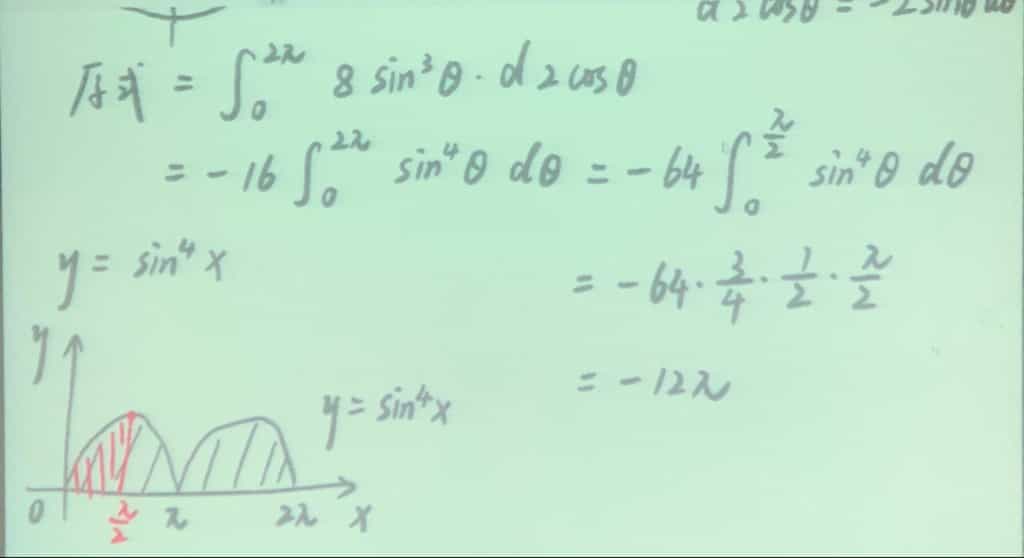 d 2 cosθ = -2 sinθ dθ
原式 = ∫₀^{2π} 8 sin³θ · d 2 cosθ
= -16 ∫₀^{2π} sin⁴θ dθ = -64 ∫₀^{π/2} sin⁴θ dθ
y = sin⁴x
= -64 · 3/4 · 1/2 · π/2
y
y = sin⁴x
= -12π
0 π/2 π 2π x